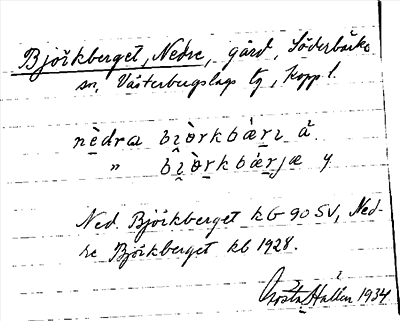 Björkberget, Nedre, gård, Söderbärke
sn, Västerbergslags tg, Kopp l.
nèdra bi̯òrkbæ̀rı ä.
" bi̯òrkbæ̀rjæ y.
Ned. Björkberget kb 90 SV, Ned-
re Björkberget kb 1928.
Gösta Hallén 1934